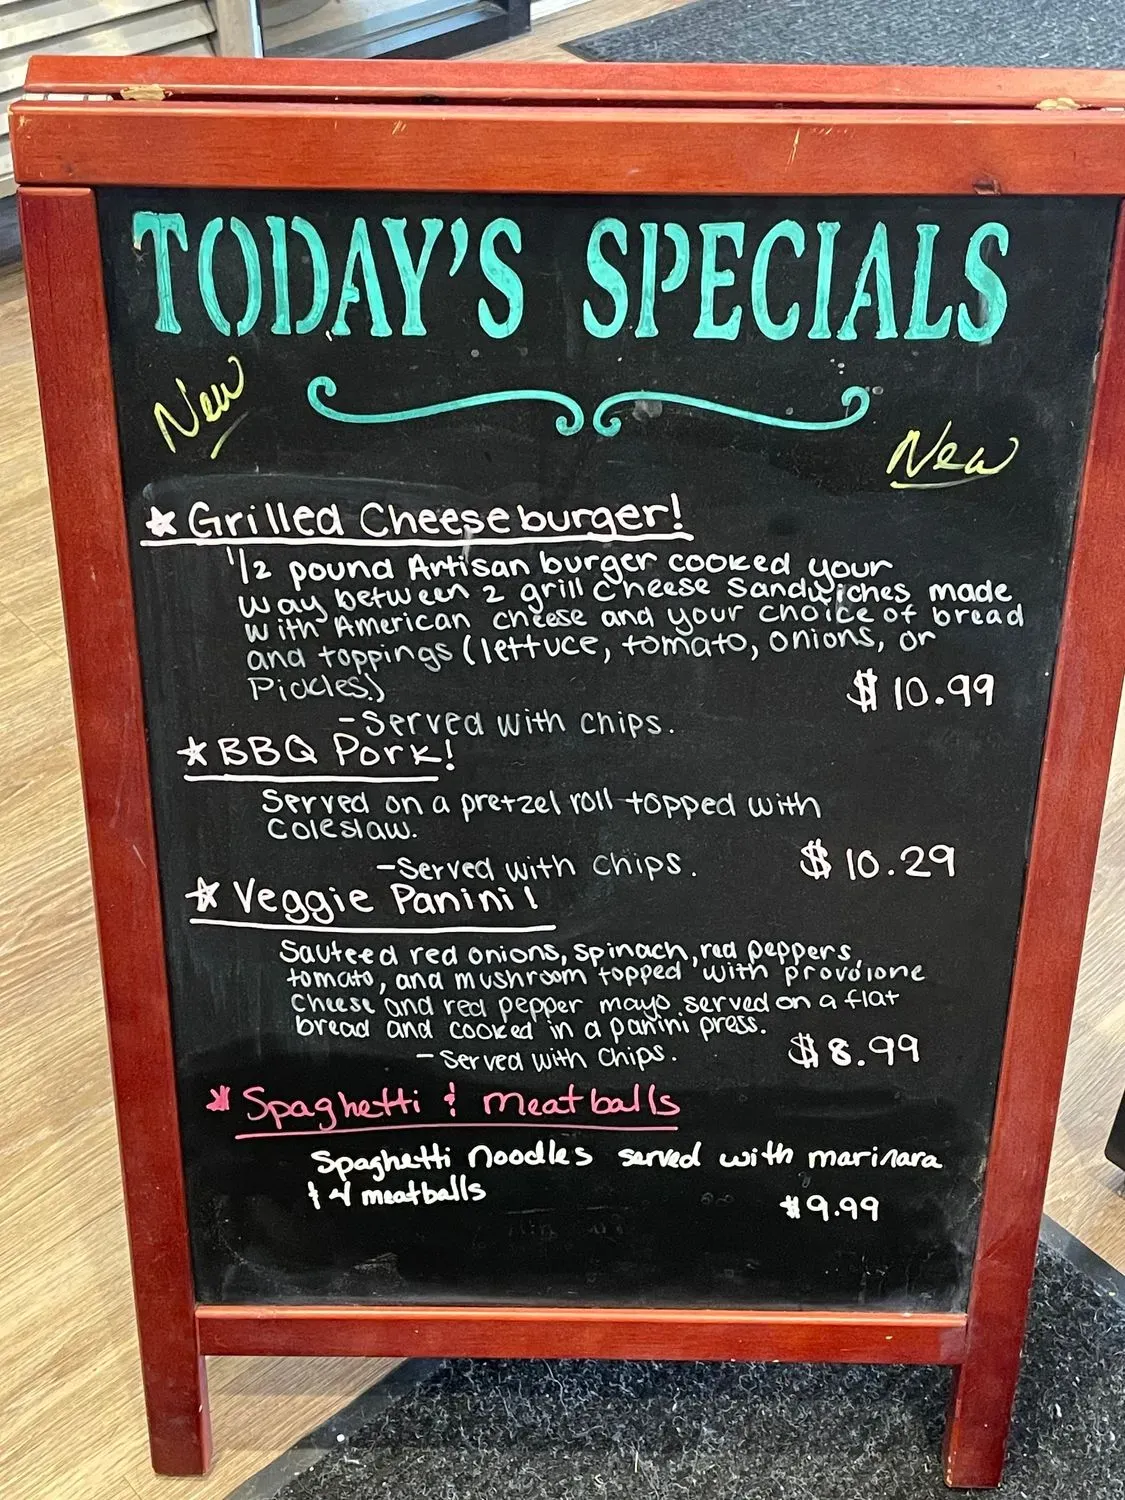 TODAY'S SPECIALS
New
New
★ Grilled Cheeseburger!
1/2 pound Artisan burger cooked your
way between 2 grill cheese sandwiches made
with American cheese and your choice of bread
and toppings (lettuce, tomato, onions, or
Pickles)
$10.99
- Served with chips.
★ BBQ Pork!
Served on a pretzel roll topped with
coleslaw.
- Served with chips.
$10.29
★ Veggie Panini!
Sauteed red onions, spinach, red peppers,
tomato, and mushroom topped with provolone
cheese and red pepper mayo served on a flat
bread and cooked in a panini press.
- Served with chips.
$8.99
* Spaghetti & meatballs
Spaghetti noodles served with marinara
& 4 meatballs
$9.99